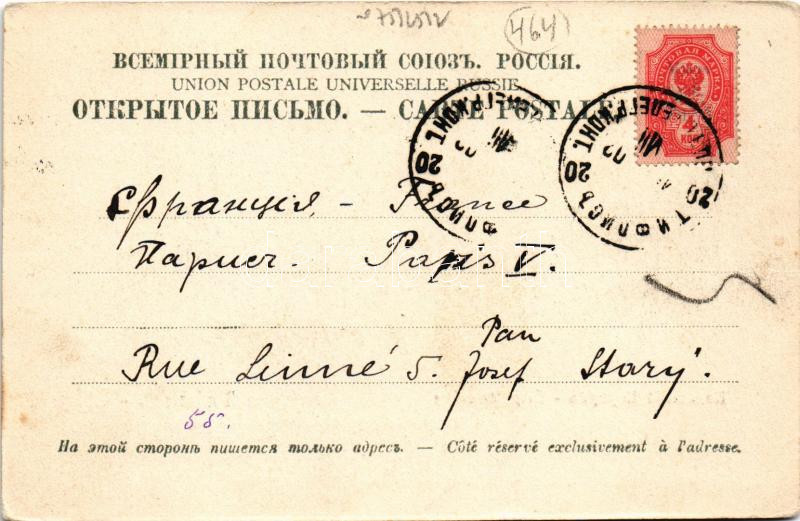 464
ВСЕМІРНЫЙ ПОЧТОВЫЙ СОЮЗЪ. РОССІЯ.
UNION POSTALE UNIVERSELLE RUSSIE
ОТКРЫТОЕ ПИСЬМО. — CARTE POSTALE
ПОЧТОВАЯ МАРКА
4 КОП
ТИФЛИСЪ 20
Франція, - France
Парис. Paris V.
Pan
Rue Linné 5. Josef Starý.
55.
На этой сторонѣ пишется только адресъ. — Côté réservé exclusivement à l'adresse.